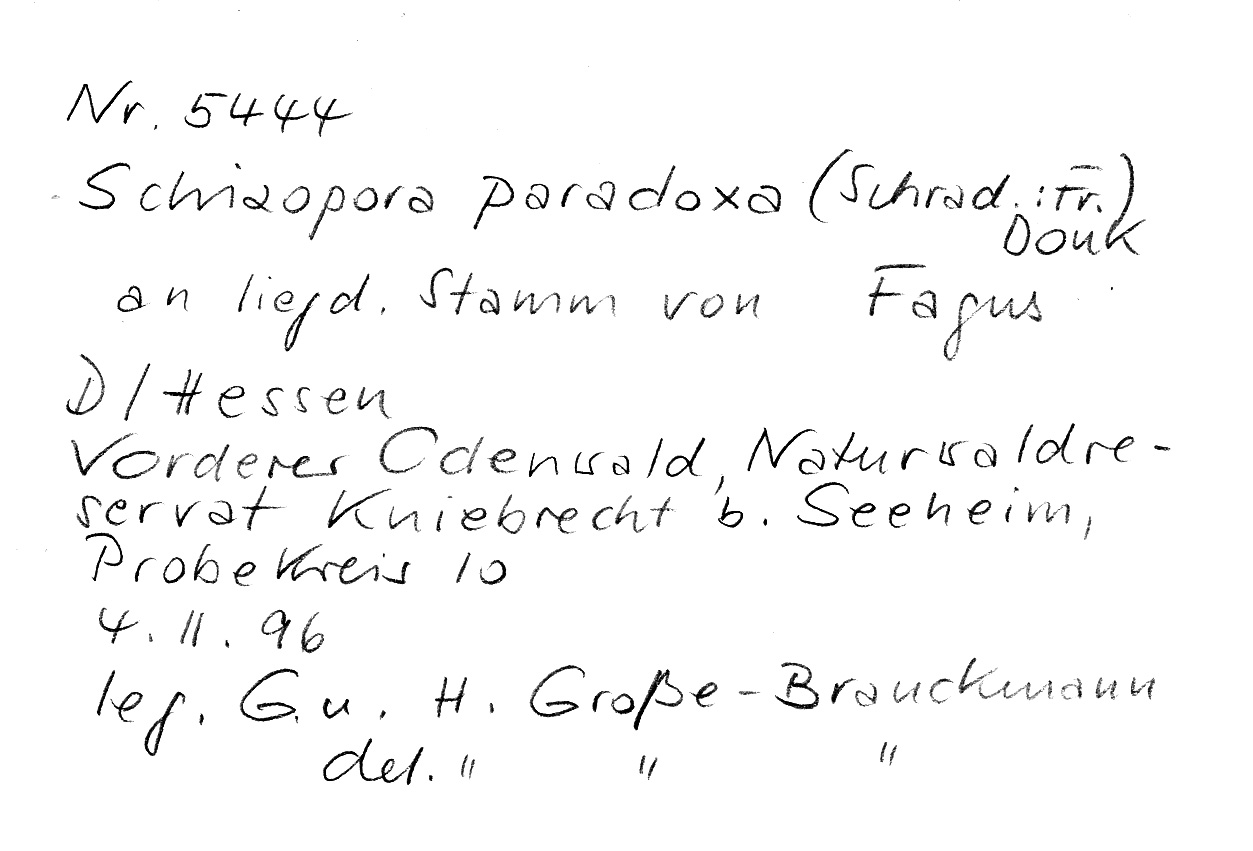 Nr. 5444
Schizopora paradoxa (Schrad.:Fr.)
Donk
an liegd. Stamm von Fagus
D/Hessen
Vorderer Odenwald, Naturwaldre-
servat Kniebrecht b. Seeheim,
Probekreis 10
4.11.96
leg. G. u. H. Große-Brauckmann
det. " " "